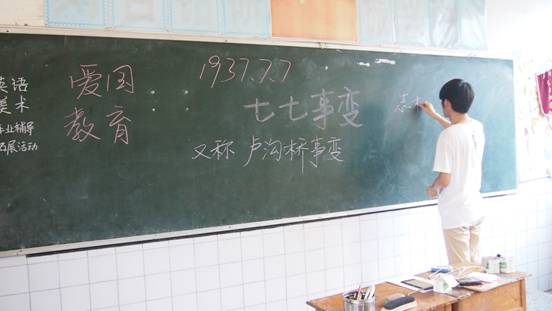 英语
美术
作业辅导
拓展活动
爱国
教育
1937.7.7
七七事变
又称 卢沟桥事变